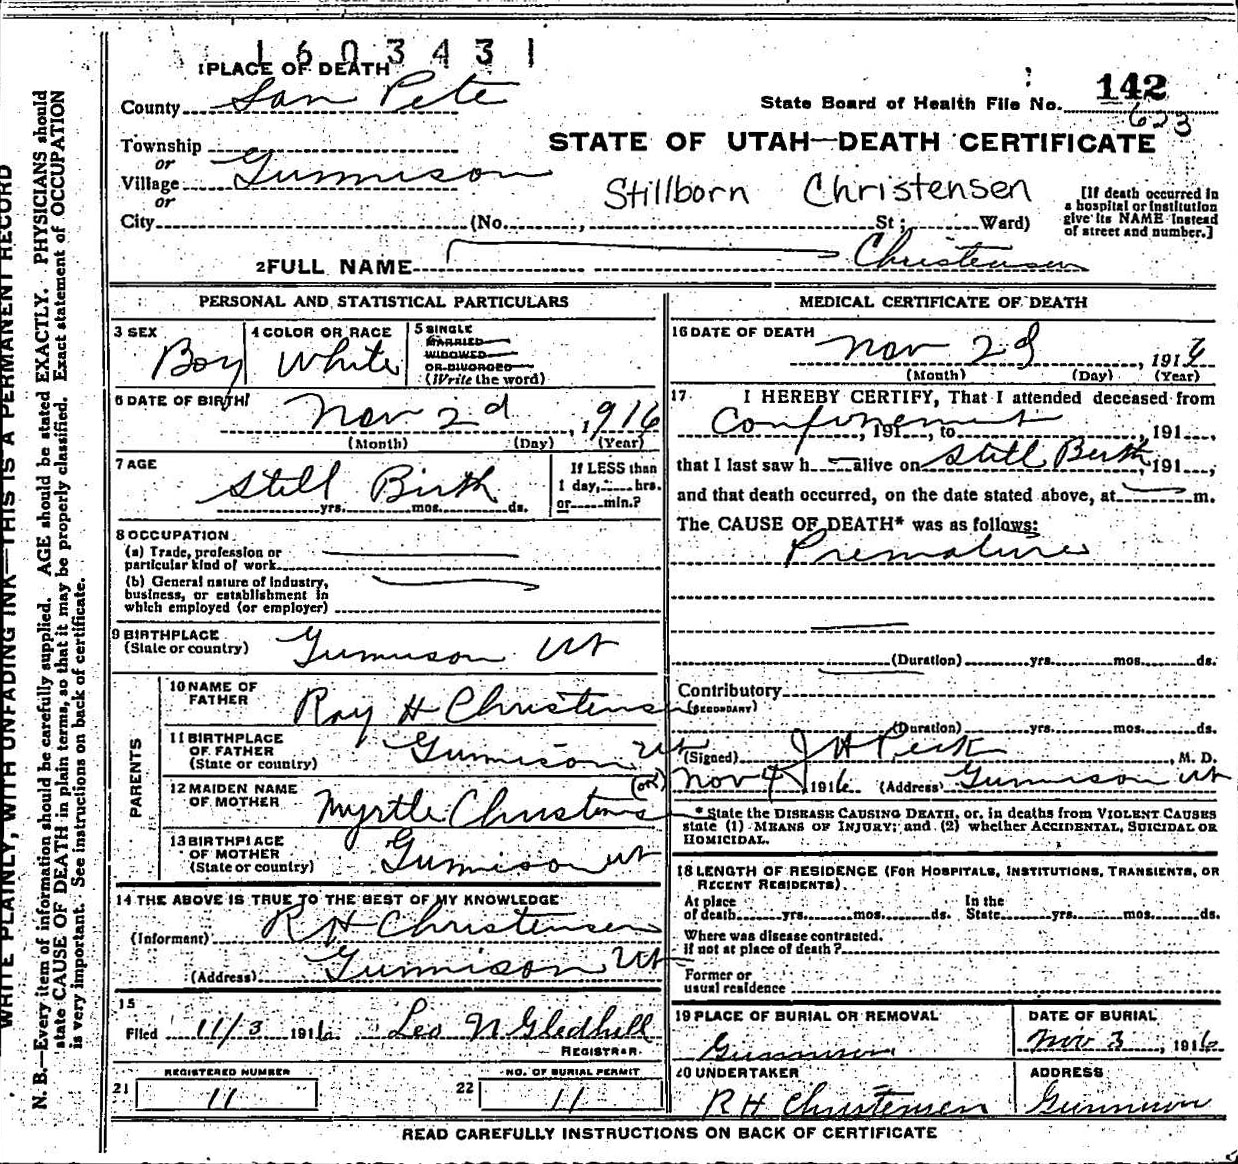 1603431
1 PLACE OF DEATH
County San Pete
142
State Board of Health File No. 623
Township
or
Village Gunnison
or
City (No. , St; Ward)
STATE OF UTAH—DEATH CERTIFICATE
Stillborn Christensen
[If death occurred in a hospital or institution give its NAME instead of street and number.]
2 FULL NAME Christensen
PERSONAL AND STATISTICAL PARTICULARS
3 SEX Boy
4 COLOR OR RACE White
5 SINGLE
MARRIED
WIDOWED
OR DIVORCED
(Write the word)
6 DATE OF BIRTH
Nov 2d, 1916
(Month) (Day) (Year)
7 AGE
Still Birth
yrs. mos. ds.
If LESS than
1 day, hrs.
or min.?
8 OCCUPATION
(a) Trade, profession or
particular kind of work
(b) General nature of industry,
business, or establishment in
which employed (or employer)
9 BIRTHPLACE
(State or country) Gunnison Ut
PARENTS
10 NAME OF
FATHER Ray H Christensen
11 BIRTHPLACE
OF FATHER
(State or country) Gunnison Ut
12 MAIDEN NAME
OF MOTHER Myrtle Christensen (OK)
13 BIRTHPLACE
OF MOTHER
(State or country) Gunnison Ut
14 THE ABOVE IS TRUE TO THE BEST OF MY KNOWLEDGE
(Informant) R H Christensen
(Address) Gunnison Ut
15
Filed 11/3 1916 Leo N Gledhill
REGISTRAR.
21 REGISTERED NUMBER
11
22 NO. OF BURIAL PERMIT
11
MEDICAL CERTIFICATE OF DEATH
16 DATE OF DEATH
Nov 2d, 1916
(Month) (Day) (Year)
17 I HEREBY CERTIFY, That I attended deceased from
Confinement, 191 , to , 191 ,
that I last saw h alive on Still Birth, 191 ,
and that death occurred, on the date stated above, at m.
The CAUSE OF DEATH* was as follows:
Premature
(Duration) yrs. mos. ds.
Contributory
(SECONDARY)
(Duration) yrs. mos. ds.
(Signed) , M. D.
Nov 4, 1916 (Address) Gunnison Ut
* State the DISEASE CAUSING DEATH, or, in deaths from VIOLENT CAUSES
state (1) MEANS OF INJURY; and (2) whether ACCIDENTAL, SUICIDAL OR
HOMICIDAL.
18 LENGTH OF RESIDENCE (FOR HOSPITALS, INSTITUTIONS, TRANSIENTS, OR
RECENT RESIDENTS).
At place of death yrs. mos. ds. In the State yrs. mos. ds.
Where was disease contracted,
if not at place of death?
Former or
usual residence
19 PLACE OF BURIAL OR REMOVAL
Gunnison
DATE OF BURIAL
Nov 3, 1916
20 UNDERTAKER
R H Christensen
ADDRESS
Gunnison
READ CAREFULLY INSTRUCTIONS ON BACK OF CERTIFICATE
WRITE PLAINLY, WITH UNFADING INK—THIS IS A PERMANENT RECORD
N. B.—Every item of information should be carefully supplied. AGE should be stated EXACTLY. PHYSICIANS should
state CAUSE OF DEATH in plain terms, so that it may be properly classified. Exact statement of OCCUPATION
is very important. See instructions on back of certificate.